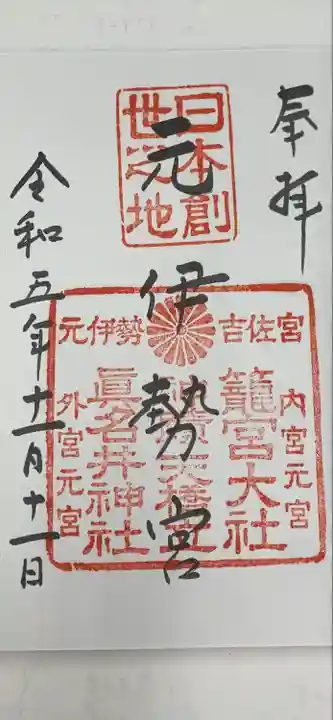 奉拝
日本創
世之地
元伊勢宮
元伊勢 吉佐宮
内宮元宮
籠宮大社
天橋立
眞名井神社
外宮元宮
令和五年十一月十一日